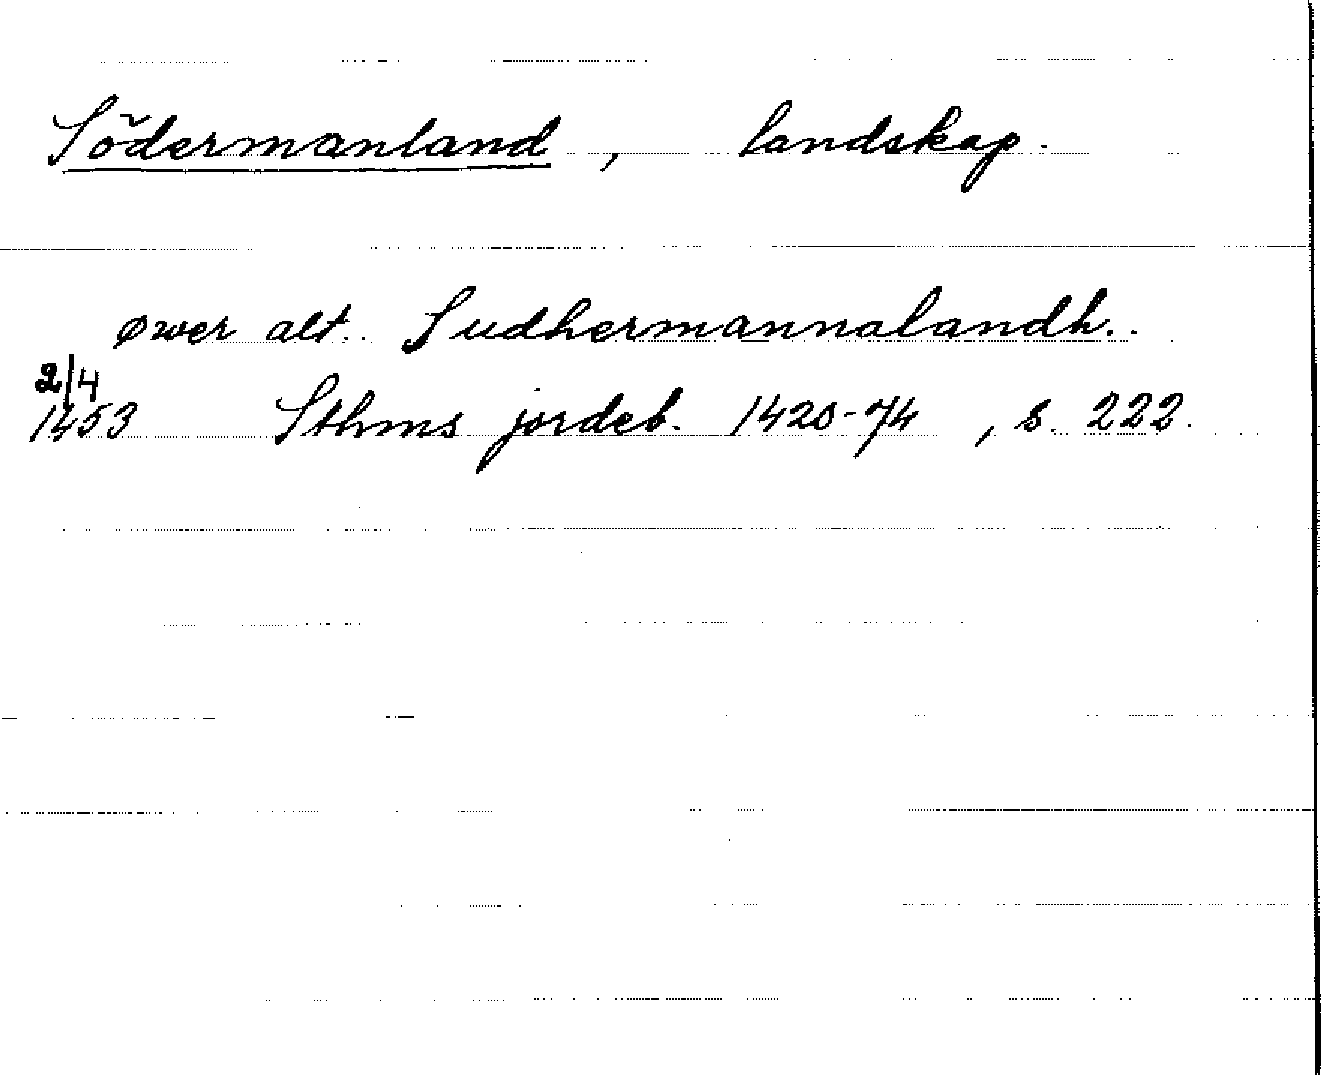 Södermanland, landskap.
øwer alt. Sudhermannalandh.
2/4
1453 Sthms jordeb. 1420-74, s. 222.